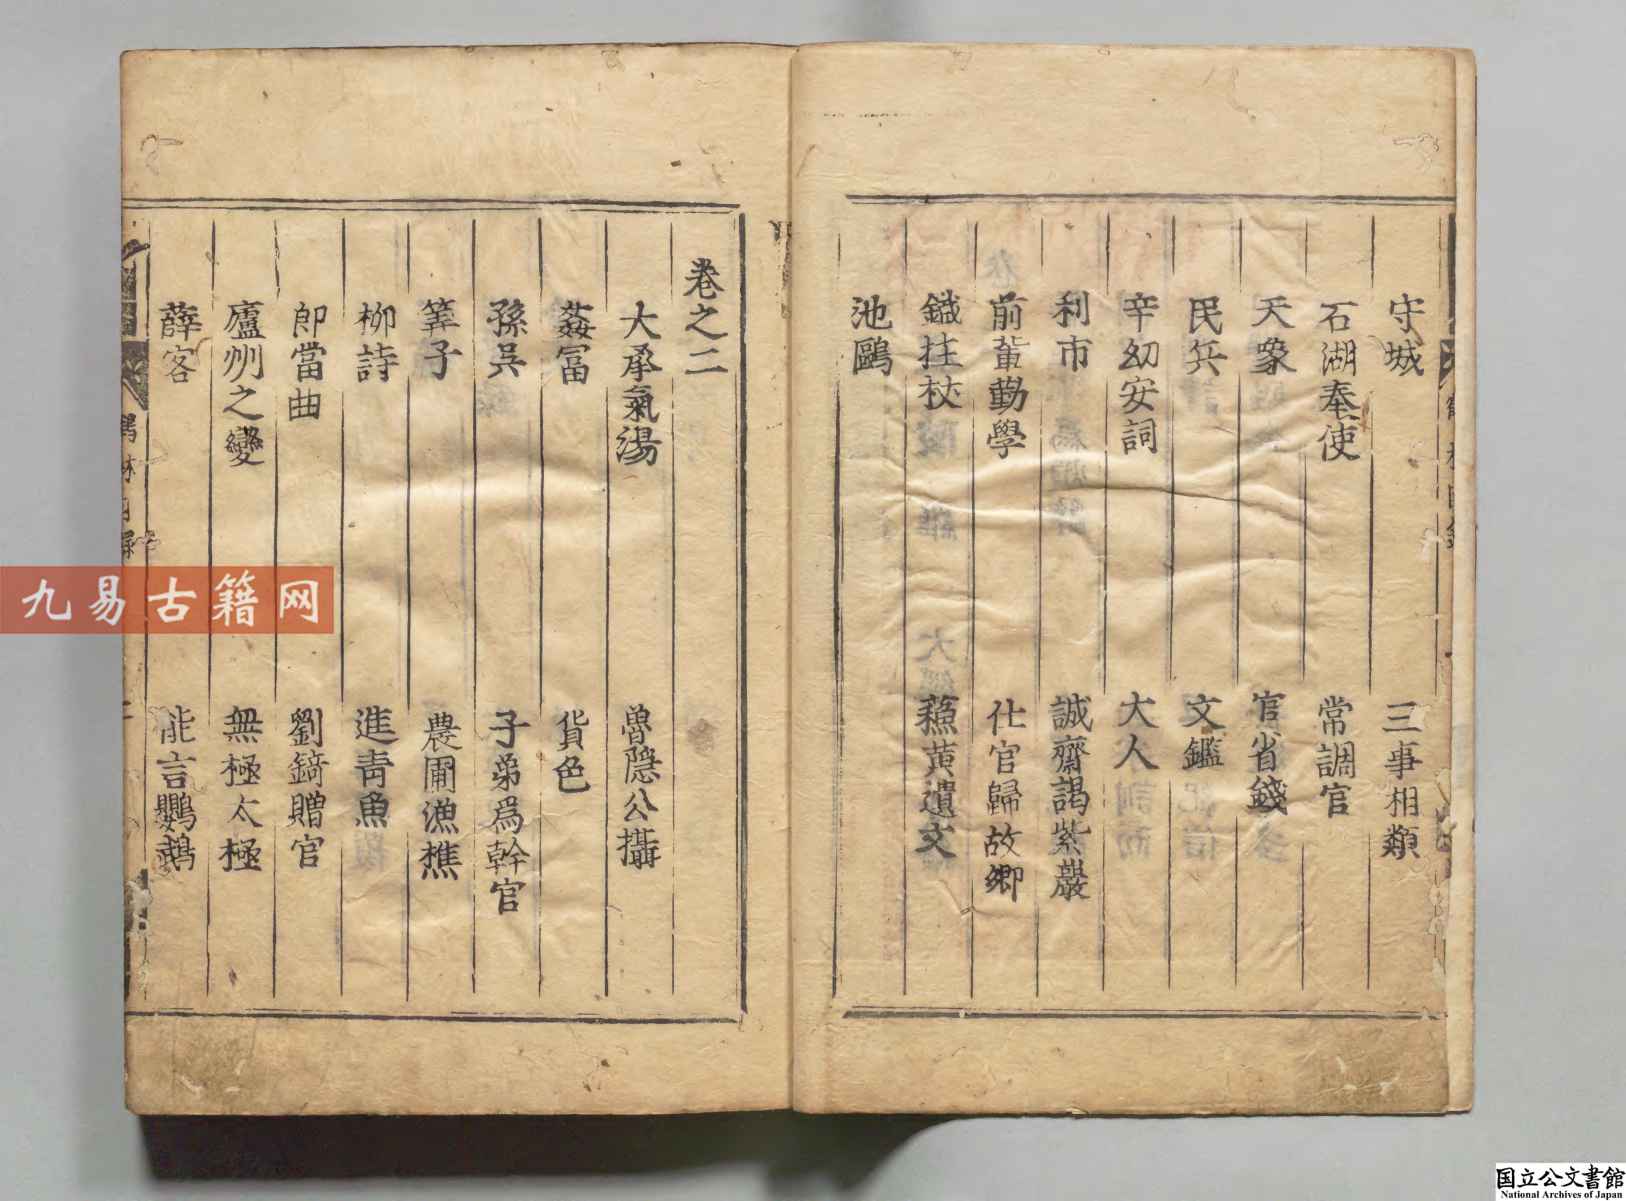 守城 三事相類
石湖奉使 常調官
天象 官省錢
民兵 文鑑
辛幼安詞 大人
利市 誠齋謁紫巖
前軰勤學 仕宦歸故鄉
鐵拄杖 蘓黄遺文
池鷗
卷之二
大承氣湯 魯隱公攝
姦冨 貨色
孫吳 子弟爲幹官
筭子 農圃漁樵
柳詩 進青魚
郎當曲 劉錡贈官
廬州之變 無極太極
薛客 能言鸚鵡
九易古籍网
国立公文書館
National Archives of Japan